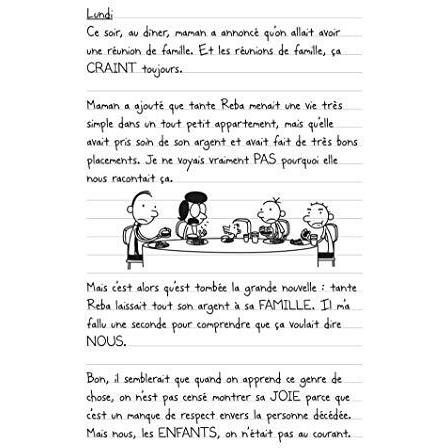 Lundi
Ce soir, au dîner, maman a annoncé qu'on allait avoir
une réunion de famille. Et les réunions de famille, ça
CRAINT toujours.
Maman a ajouté que tante Reba menait une vie très
simple dans un tout petit appartement, mais qu'elle
avait pris soin de son argent et avait fait de très bons
placements. Je ne voyais vraiment PAS pourquoi elle
nous racontait ça.
Mais c'est alors qu'est tombée la grande nouvelle : tante
Reba laissait tout son argent à sa FAMILLE. Il m'a
fallu une seconde pour comprendre que ça voulait dire
NOUS.
Bon, il semblerait que quand on apprend ce genre de
chose, on n'est pas censé montrer sa JOIE parce que
c'est un manque de respect envers la personne décédée.
Mais nous, les ENFANTS, on n'était pas au courant.